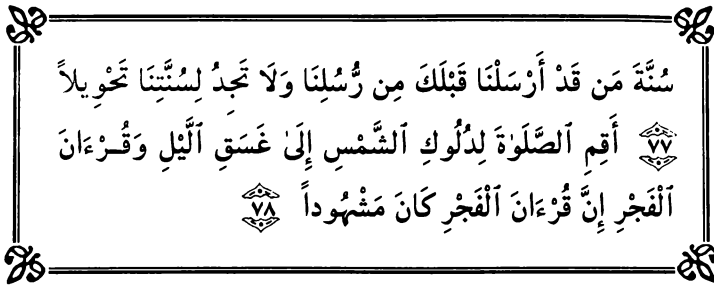 سُنَّةَ مَن قَدْ أَرْسَلْنَا قَبْلَكَ مِن رُّسُلِنَا وَلَا تَجِدُ لِسُنَّتِنَا تَحْوِيلاً
٧٧ أَقِمِ ٱلصَّلَوٰةَ لِدُلُوكِ ٱلشَّمْسِ إِلَىٰ غَسَقِ ٱلَّيْلِ وَقُرْءَانَ
ٱلْفَجْرِ إِنَّ قُرْءَانَ ٱلْفَجْرِ كَانَ مَشْهُوداً ٧٨